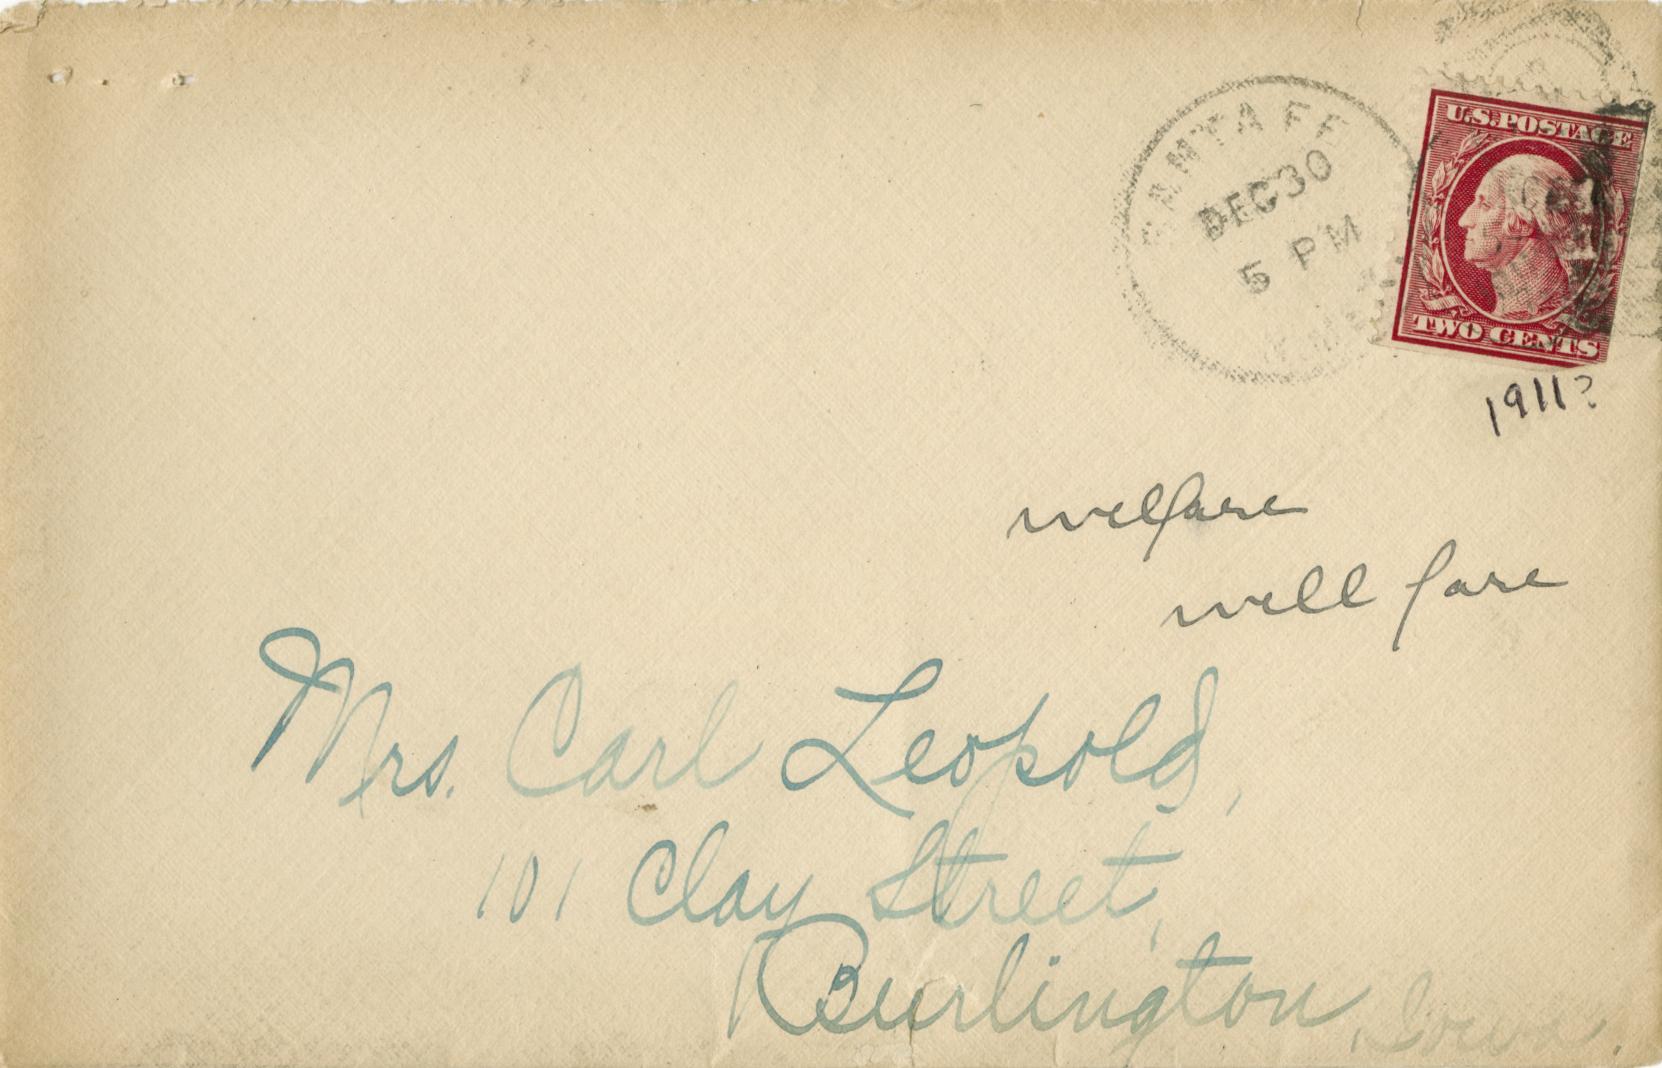 SANTA FE
DEC 30
5 PM
N. MEX.
U.S. POSTAGE
TWO CENTS
1911?
welfare
well fare
Mrs. Carl Leopold,
101 Clay Street,
Burlington, Iowa.